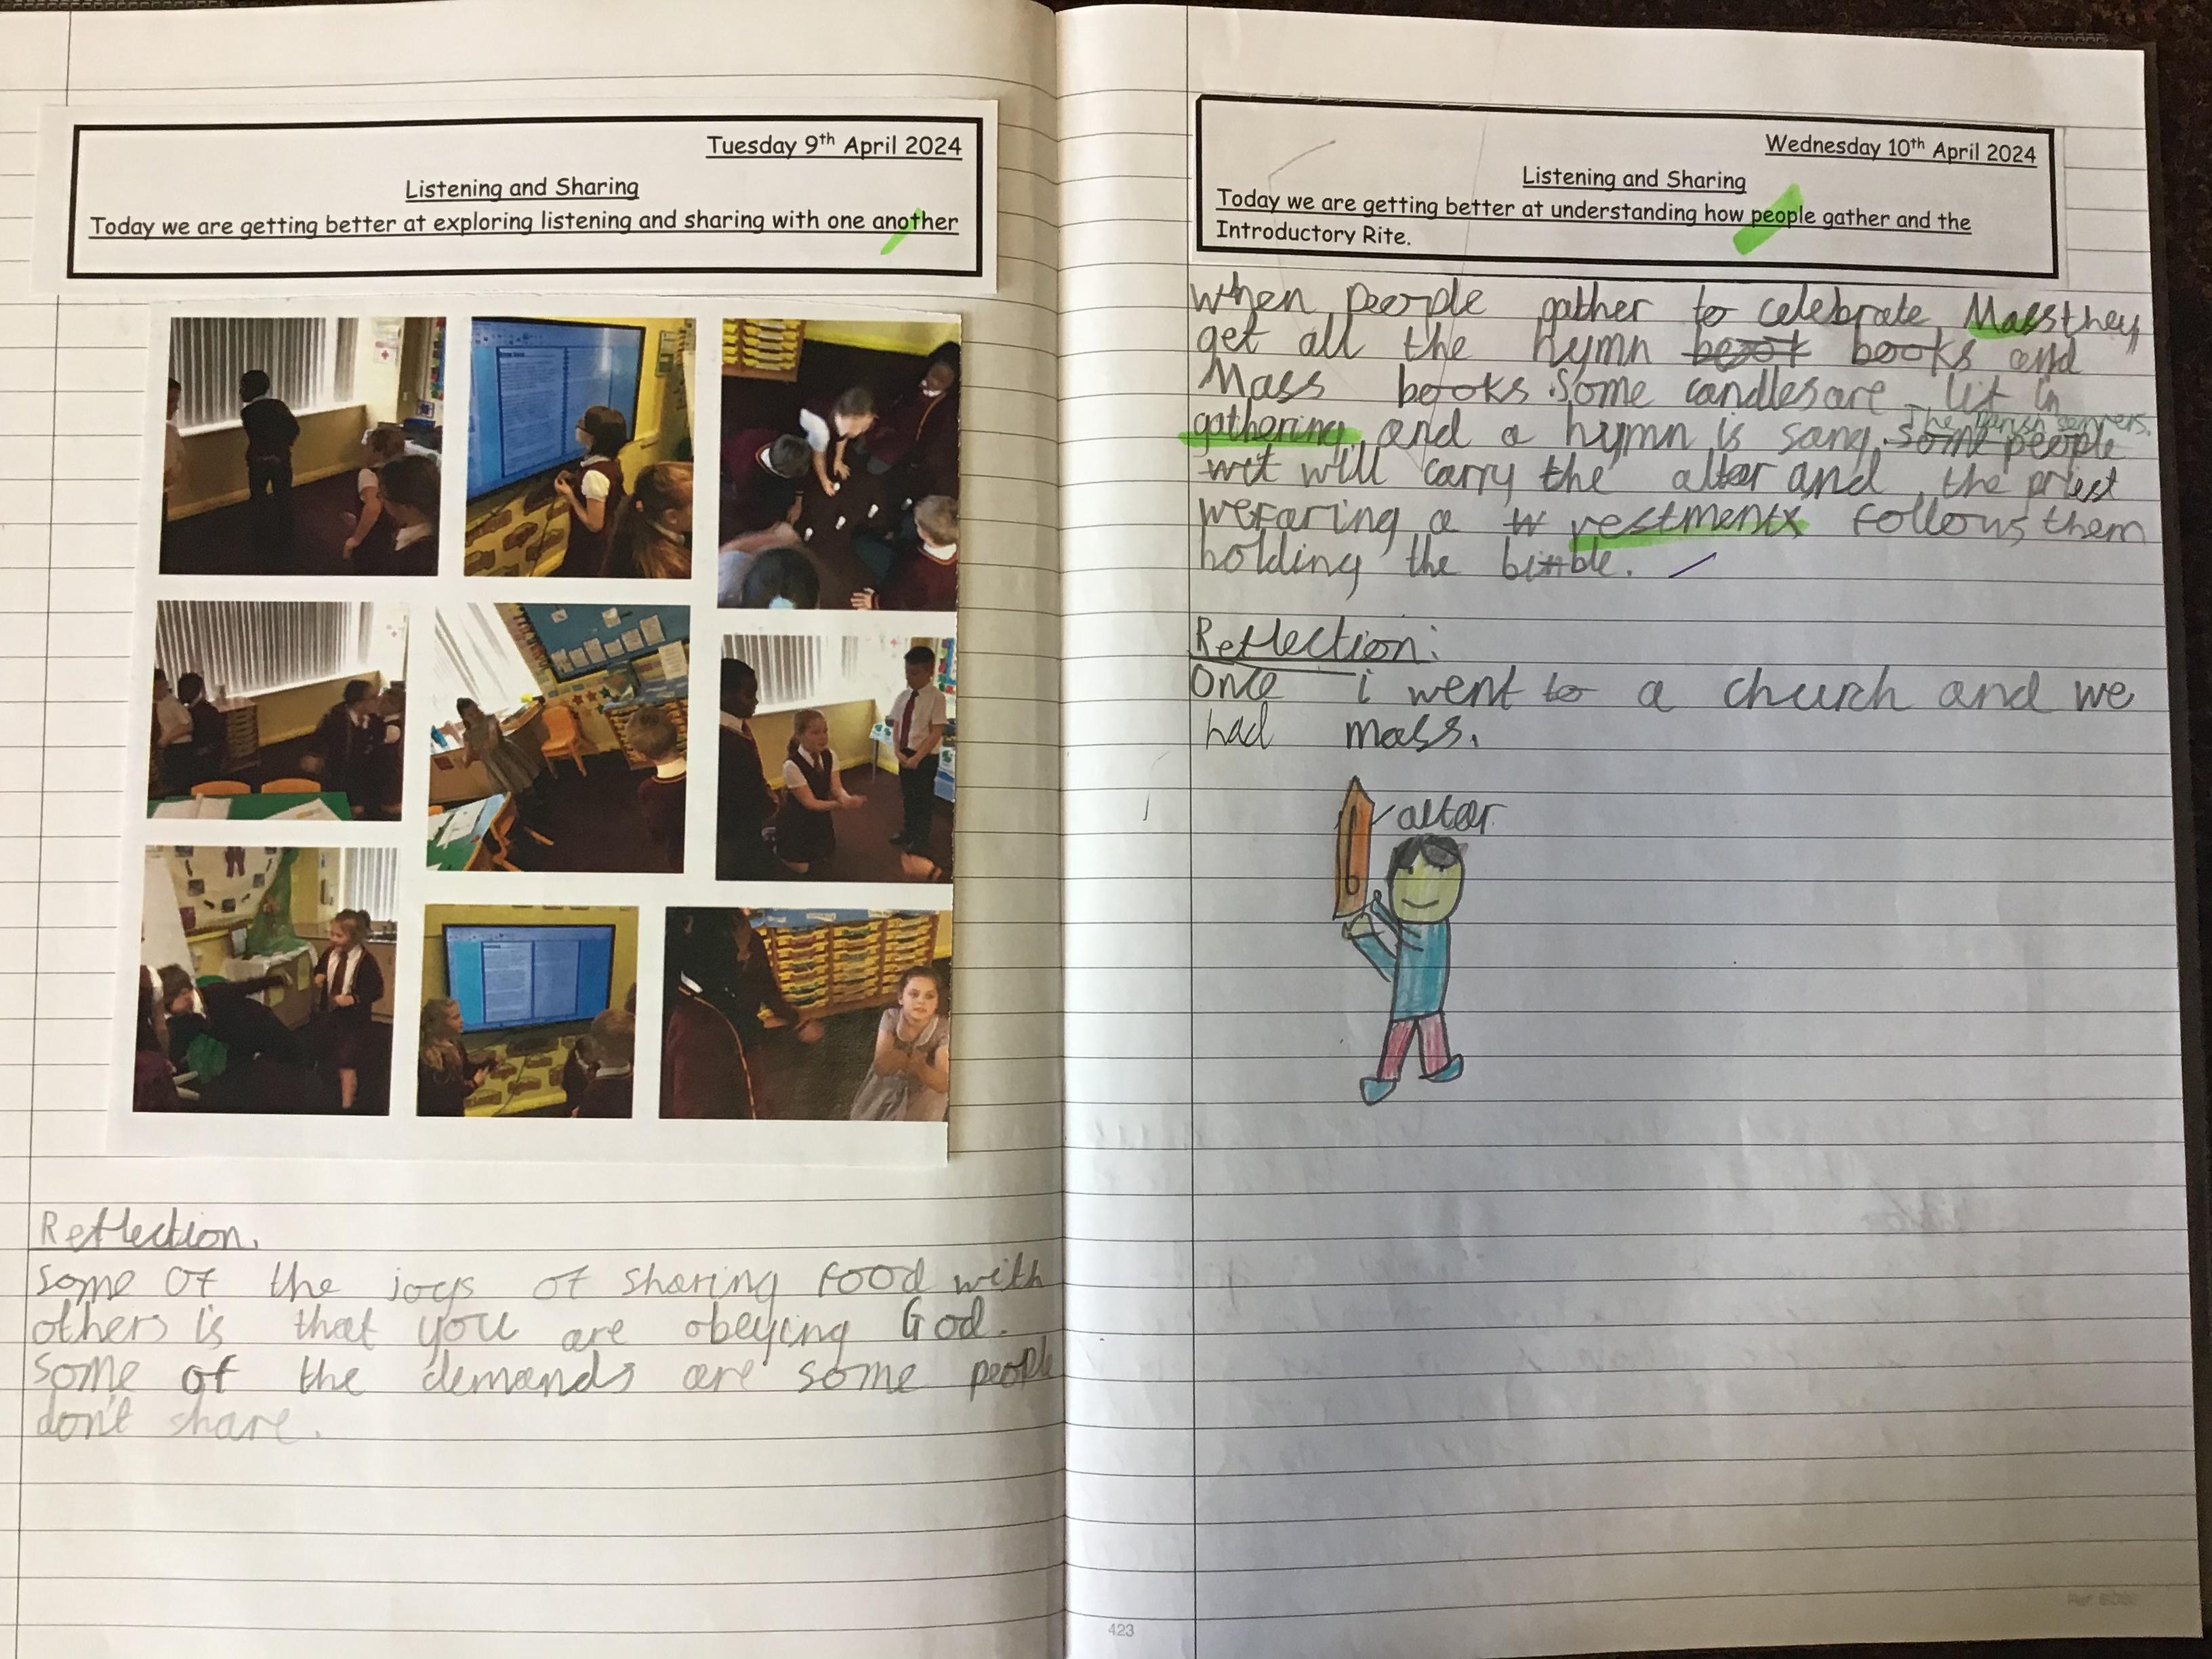 Tuesday 9th April 2024
Listening and Sharing
Today we are getting better at exploring listening and sharing with one another
Reflection.
some of the joys of sharing food with
others is that you are obeying God.
some of the demands are some people
don't share.
Wednesday 10th April 2024
Listening and Sharing
Today we are getting better at understanding how people gather and the
Introductory Rite.
When people gather to celebrate Mass they
get all the hymn books and
Mass books. Some candles are lit in
The Parish servers.
gathering and a hymn is sang. some people
will carry the altar and the priest
wearing a vestment follows them
holding the bible.
Reflection:
Once i went to a church and we
had mass.
altar
423